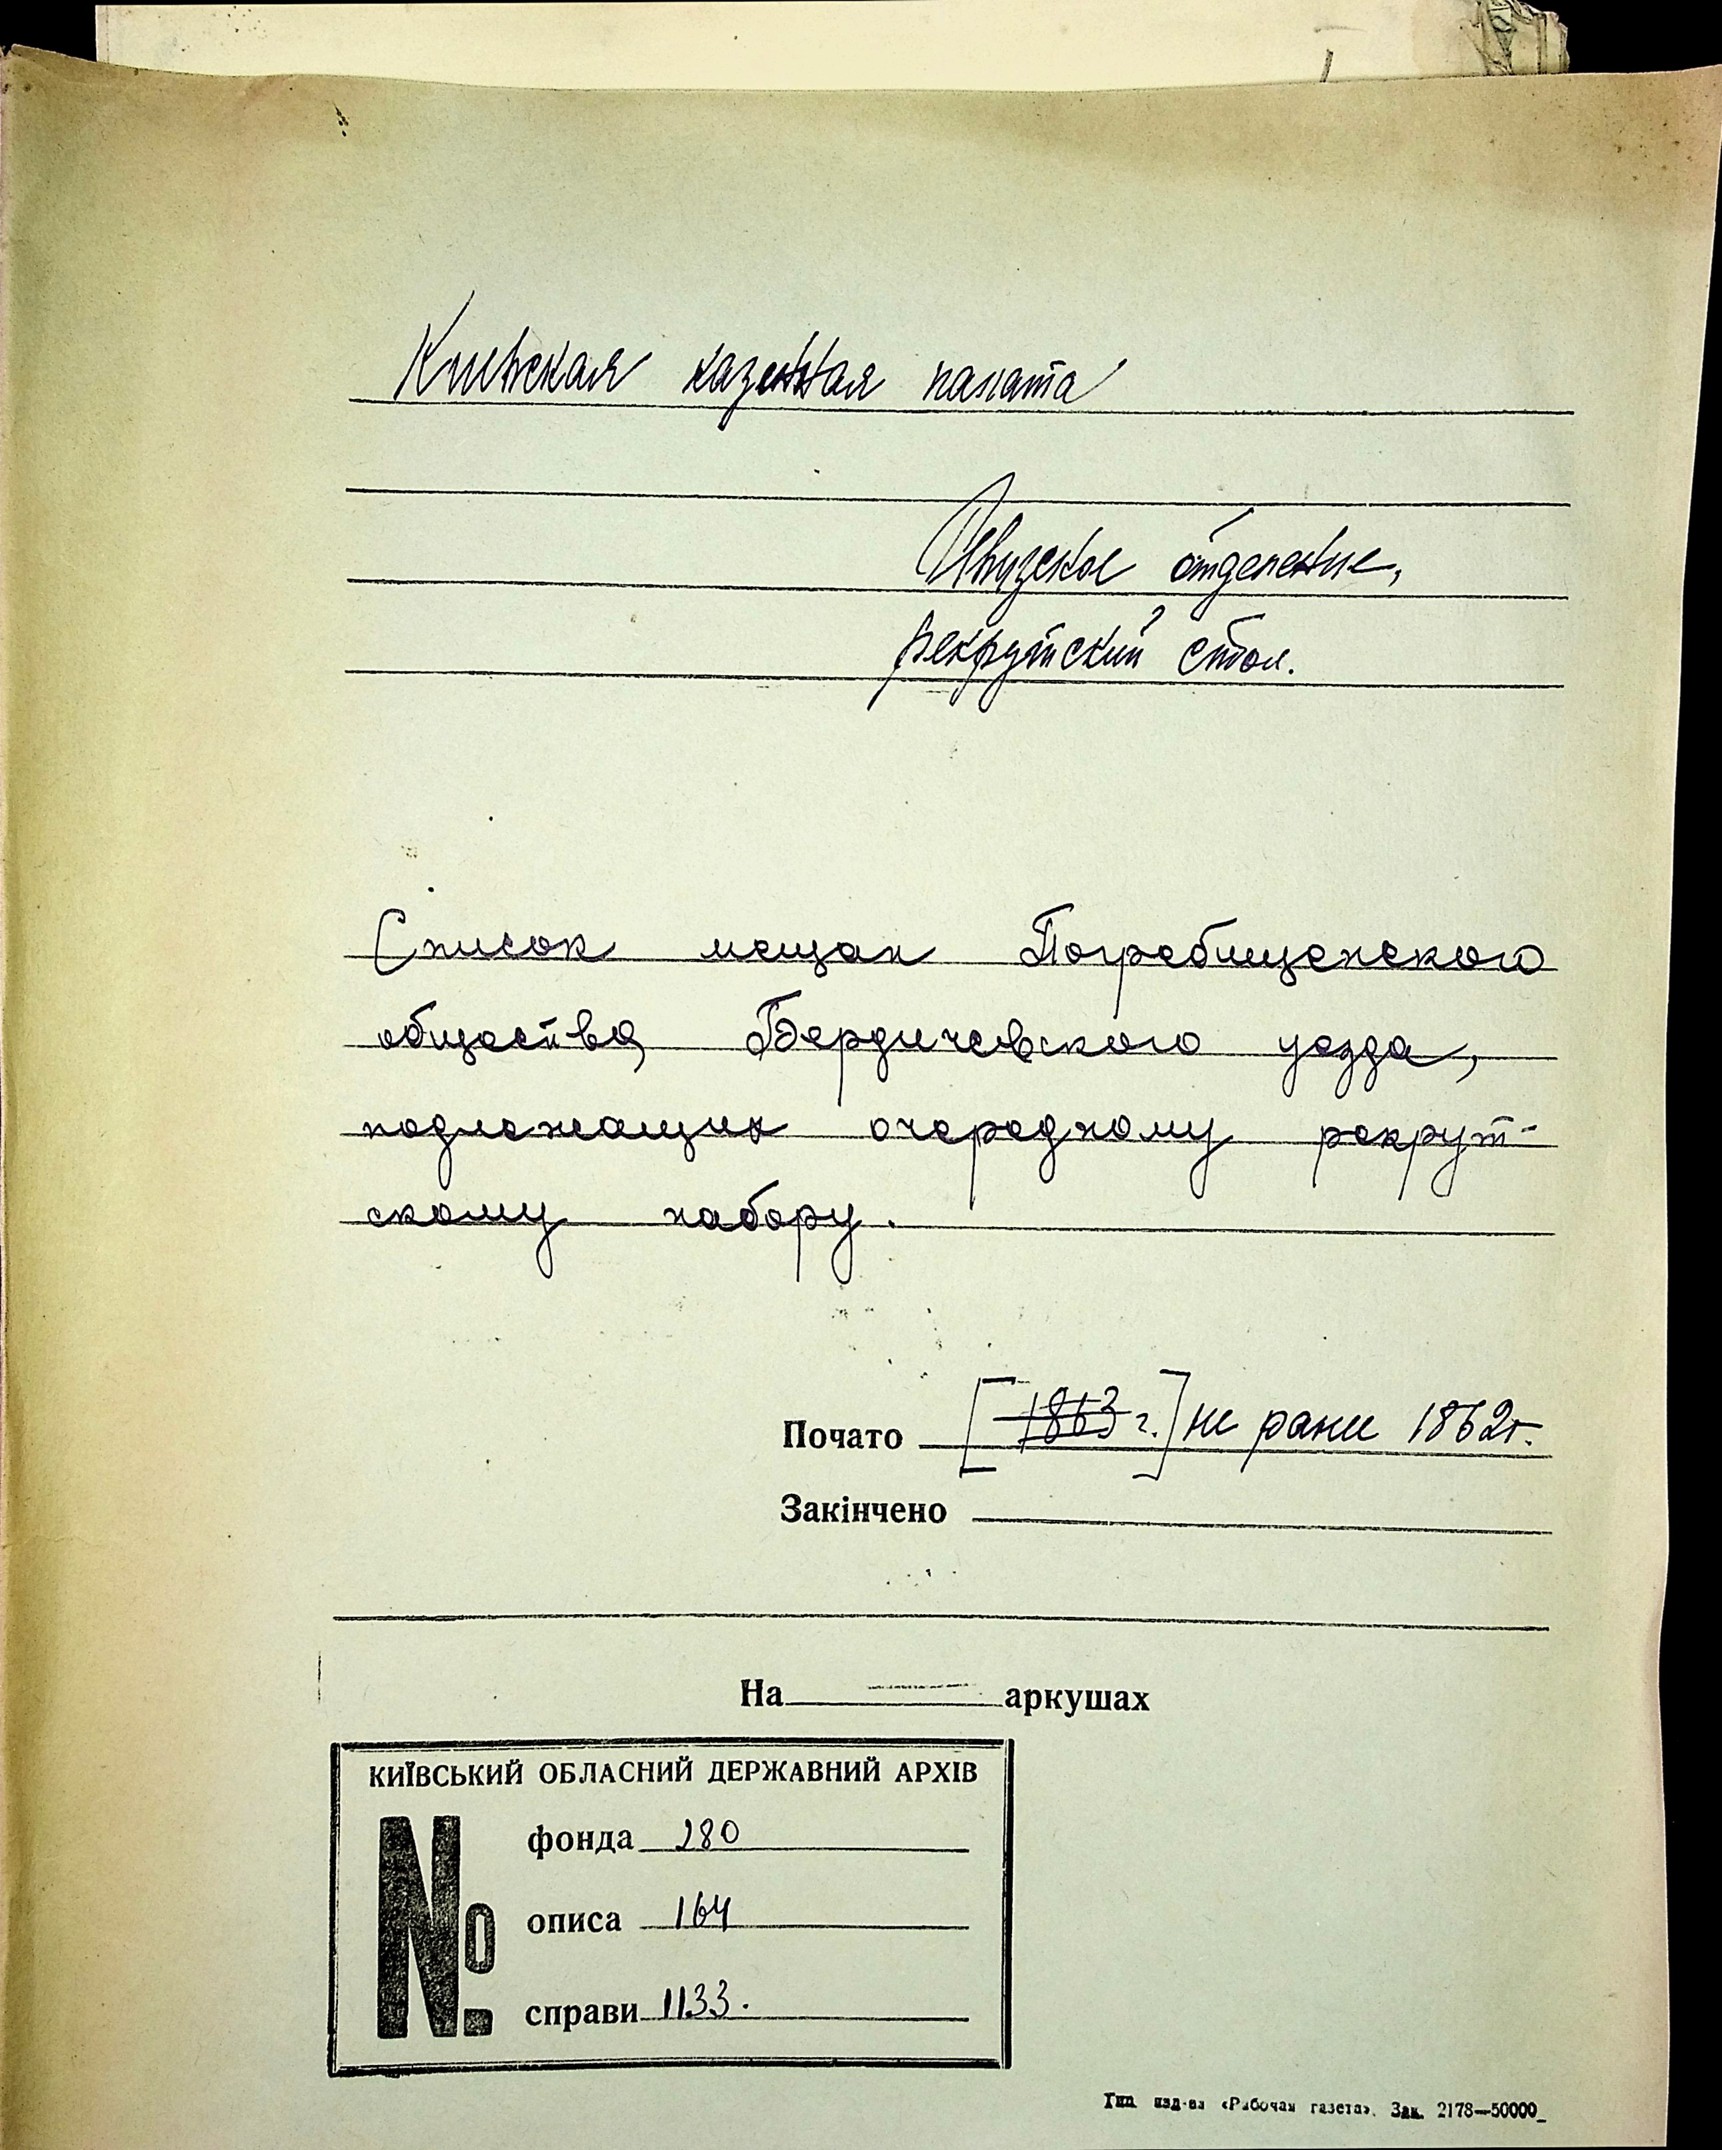 Киевская казенная палата
Ревизское отделение,
рекрутский стол.
Список мещан Погребищенского
общества Бердичевского уезда,
подлежащих очередному рекрут-
скому набору.
Почато [1863 г.] не ранее 1862г.
Закінчено
На аркушах
КИЇВСЬКИЙ ОБЛАСНИЙ ДЕРЖАВНИЙ АРХІВ
№
фонда 280
описа 164
справи 1133.
Тип. изд-ва «Рабочая газета». Зак. 2178—50000